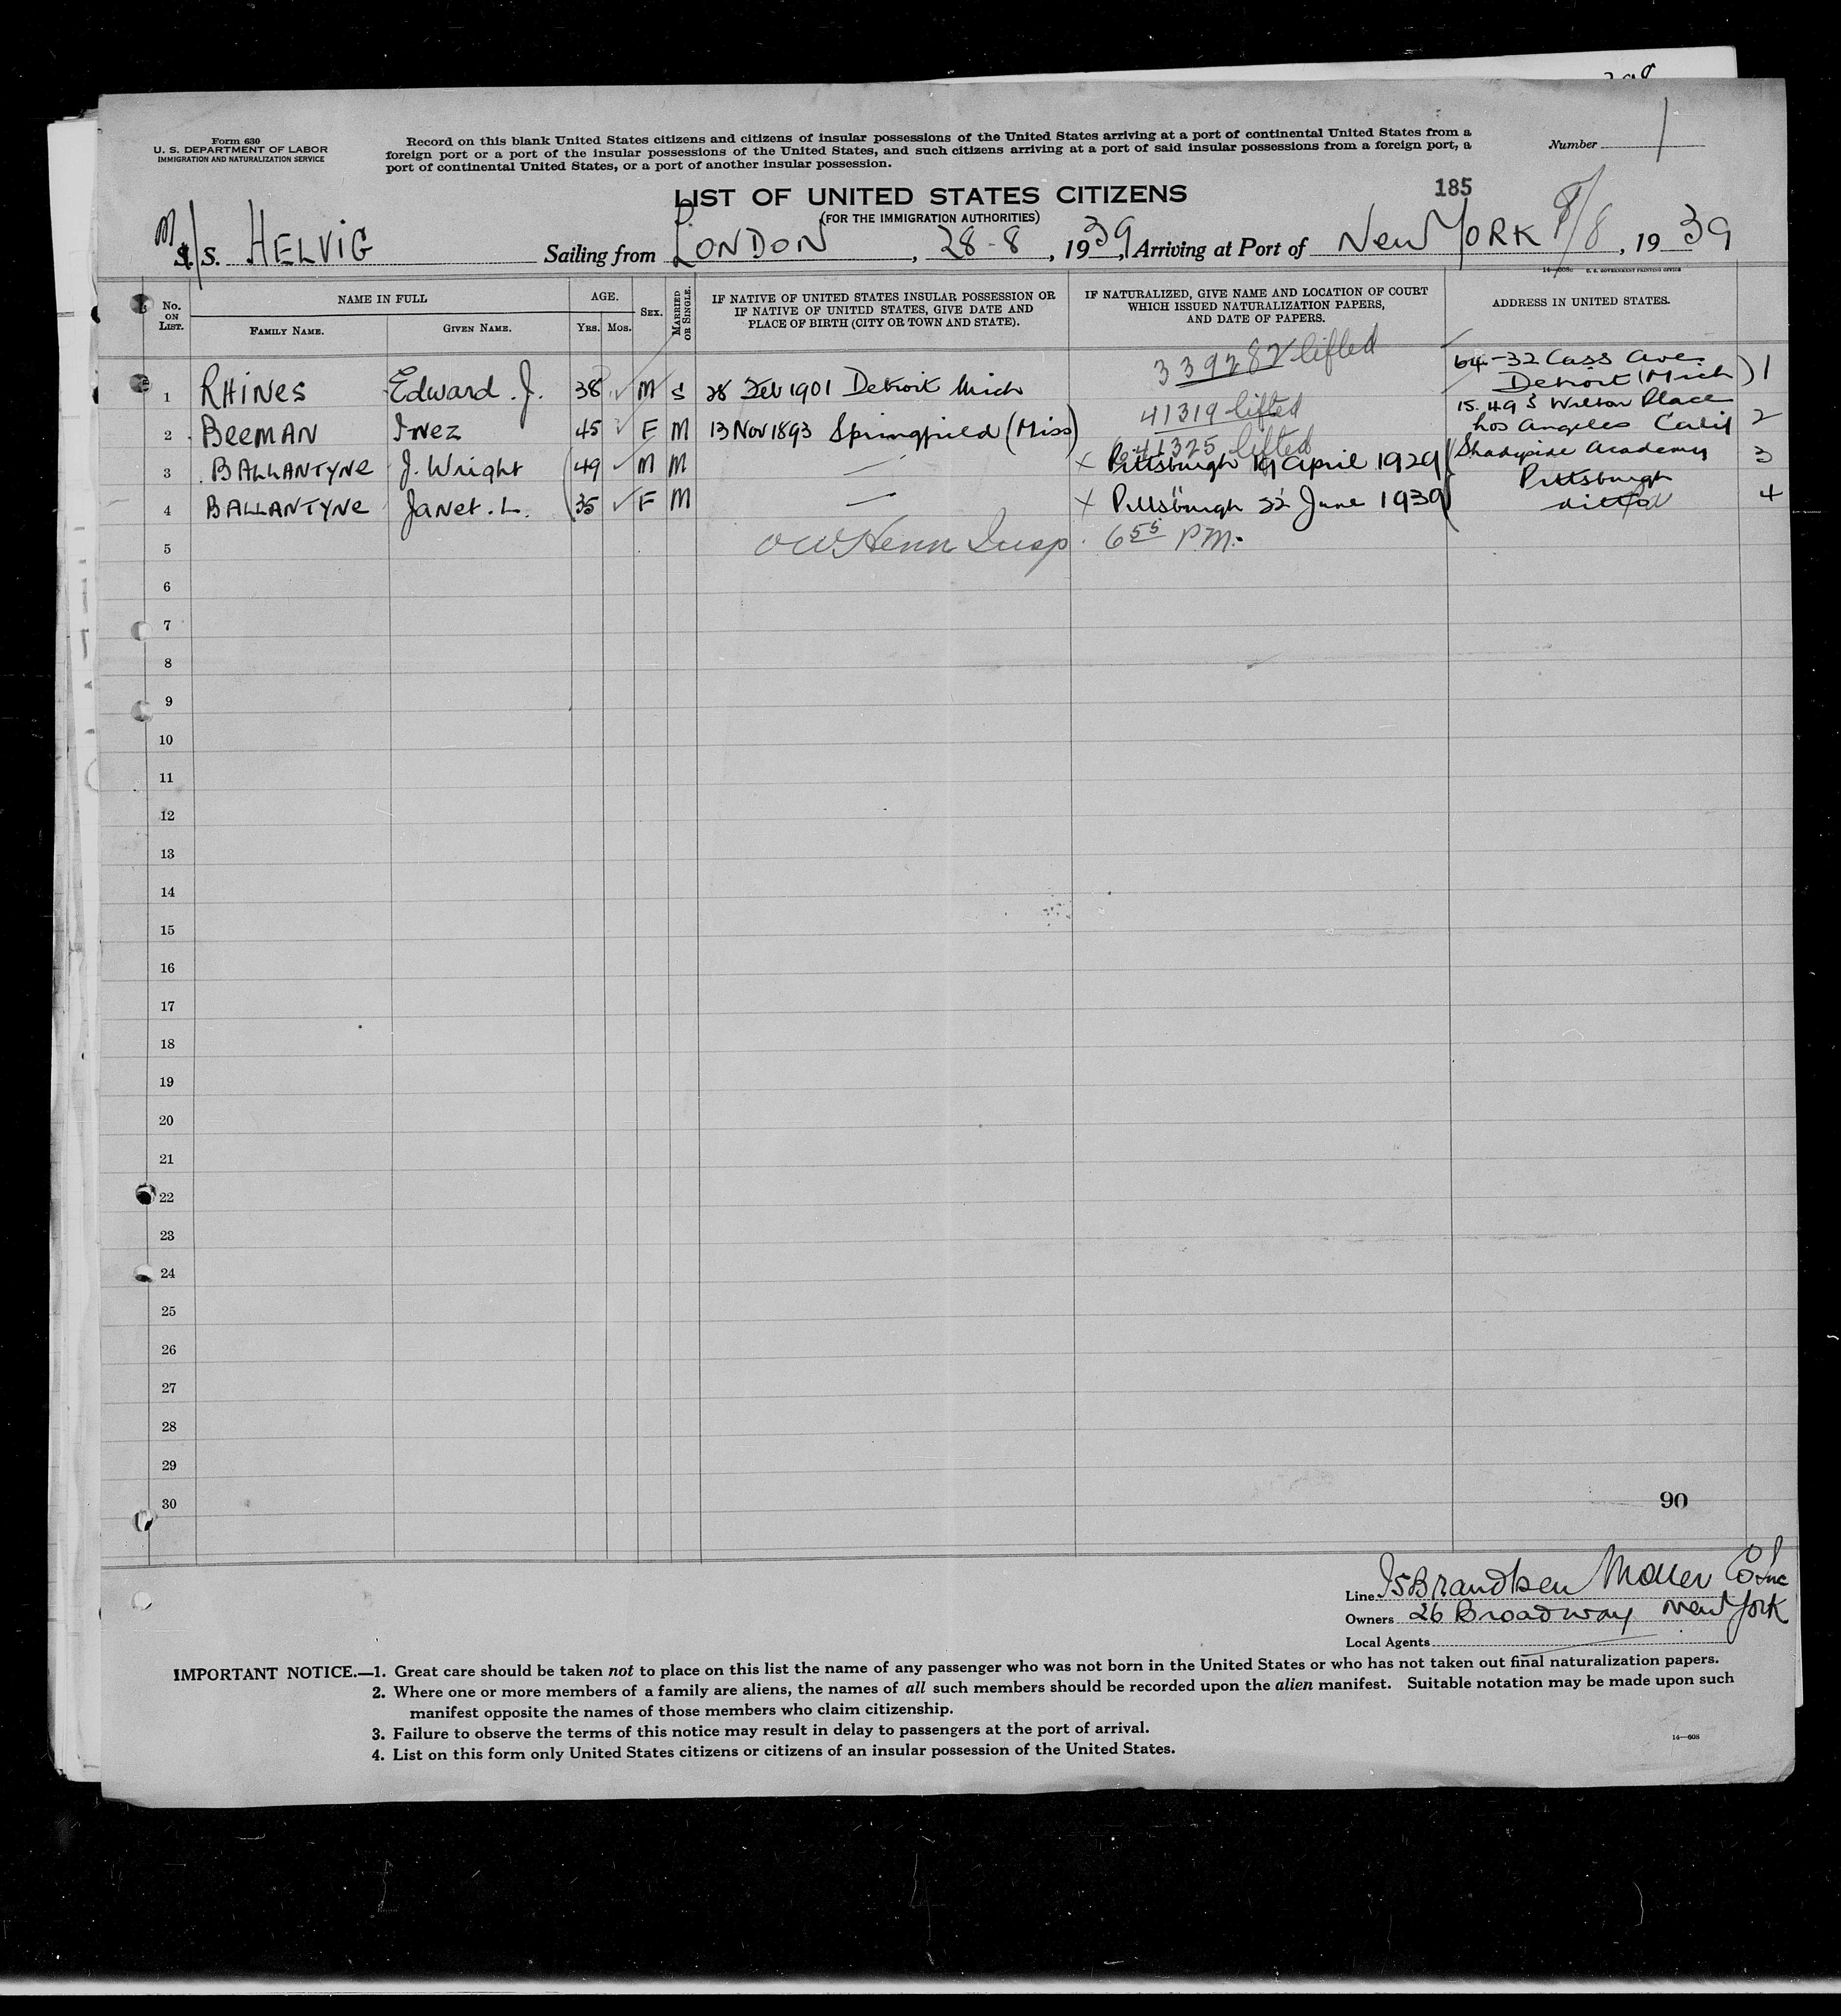 Form 630
U. S. DEPARTMENT OF LABOR
IMMIGRATION AND NATURALIZATION SERVICE
Record on this blank United States citizens and citizens of insular possessions of the United States arriving at a port of continental United States from a
foreign port or a port of the insular possessions of the United States, and such citizens arriving at a port of said insular possessions from a foreign port, a
port of continental United States, or a port of another insular possession.
Number 1
LIST OF UNITED STATES CITIZENS
185
(FOR THE IMMIGRATION AUTHORITIES)
M/S. HELVIG Sailing from LONDON, 28-8, 1939, Arriving at Port of New YORK /8, 1939
14—608c U. S. GOVERNMENT PRINTING OFFICE
No. ON LIST. NAME IN FULL FAMILY NAME. GIVEN NAME. AGE. YRS. MOS. SEX. MARRIED OR SINGLE. IF NATIVE OF UNITED STATES INSULAR POSSESSION OR IF NATIVE OF UNITED STATES, GIVE DATE AND PLACE OF BIRTH (CITY OR TOWN AND STATE). IF NATURALIZED, GIVE NAME AND LOCATION OF COURT WHICH ISSUED NATURALIZATION PAPERS, AND DATE OF PAPERS. ADDRESS IN UNITED STATES.
339282 lifted
64-32 Cass Ave
1 RHINES Edward. J. 38 ✓ M S 28 Feb 1901 Detroit Mich Detroit (Mich) 1
41319 lifted
15.49 S Wilton Place
2 BEEMAN Inez 45 ✓ F M 13 Nov 1893 Springfield (Miss) Los Angeles Calif 2
41325 lifted
3 BALLANTYNE J. Wright (49 ✓ M M — x Pittsburgh 19 April 1929 Shadyside Academy 3
Pittsburgh
4 BALLANTYNE Janet. L. (35 ✓ F M — x Pittsburgh 22 June 1939 ditto 4
5 Insp. 6 55 P.M.
6
7
8
9
10
11
12
13
14
15
16
17
18
19
20
21
22
23
24
25
26
27
28
29
30
90
Line IsBrandtsen Moller Co Inc
Owners 26 Broadway New York
Local Agents
IMPORTANT NOTICE.—1. Great care should be taken not to place on this list the name of any passenger who was not born in the United States or who has not taken out final naturalization papers.
2. Where one or more members of a family are aliens, the names of all such members should be recorded upon the alien manifest. Suitable notation may be made upon such
manifest opposite the names of those members who claim citizenship.
3. Failure to observe the terms of this notice may result in delay to passengers at the port of arrival.
4. List on this form only United States citizens or citizens of an insular possession of the United States.
14—608